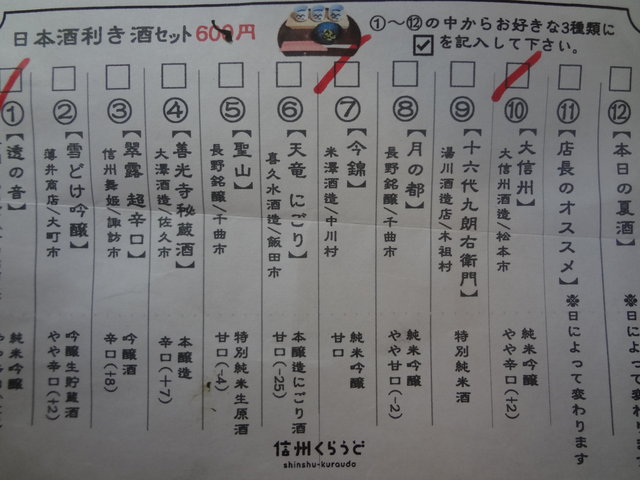 日本酒利き酒セット 600円
①～⑫の中からお好きな3種類に
☑を記入して下さい。
①【透の音】
純米吟醸
②【雪どけ吟醸】
薄井商店/大町市
吟醸生貯蔵酒
やや辛口(+2)
③【翠露 超辛口】
信州舞姫/諏訪市
吟醸酒
辛口(+8)
④【善光寺秘蔵酒】
大澤酒造/佐久市
本醸造
辛口(+7)
⑤【聖山】
長野銘醸/千曲市
特別純米生原酒
甘口(-4)
⑥【天竜 にごり】
喜久水酒造/飯田市
本醸造にごり酒
甘口(-25)
⑦【今錦】
米澤酒造/中川村
純米吟醸
甘口
⑧【月の都】
長野銘醸/千曲市
純米吟醸
やや甘口(-2)
⑨【十六代九朗右衛門】
湯川酒造店/木祖村
特別純米酒
⑩【大信州】
大信州酒造/松本市
純米吟醸
やや辛口(+2)
⑪【店長のオススメ】
※日によって変わります
⑫【本日の夏酒】
※日によって変わります
信州くらうど
shinshu-kurauda